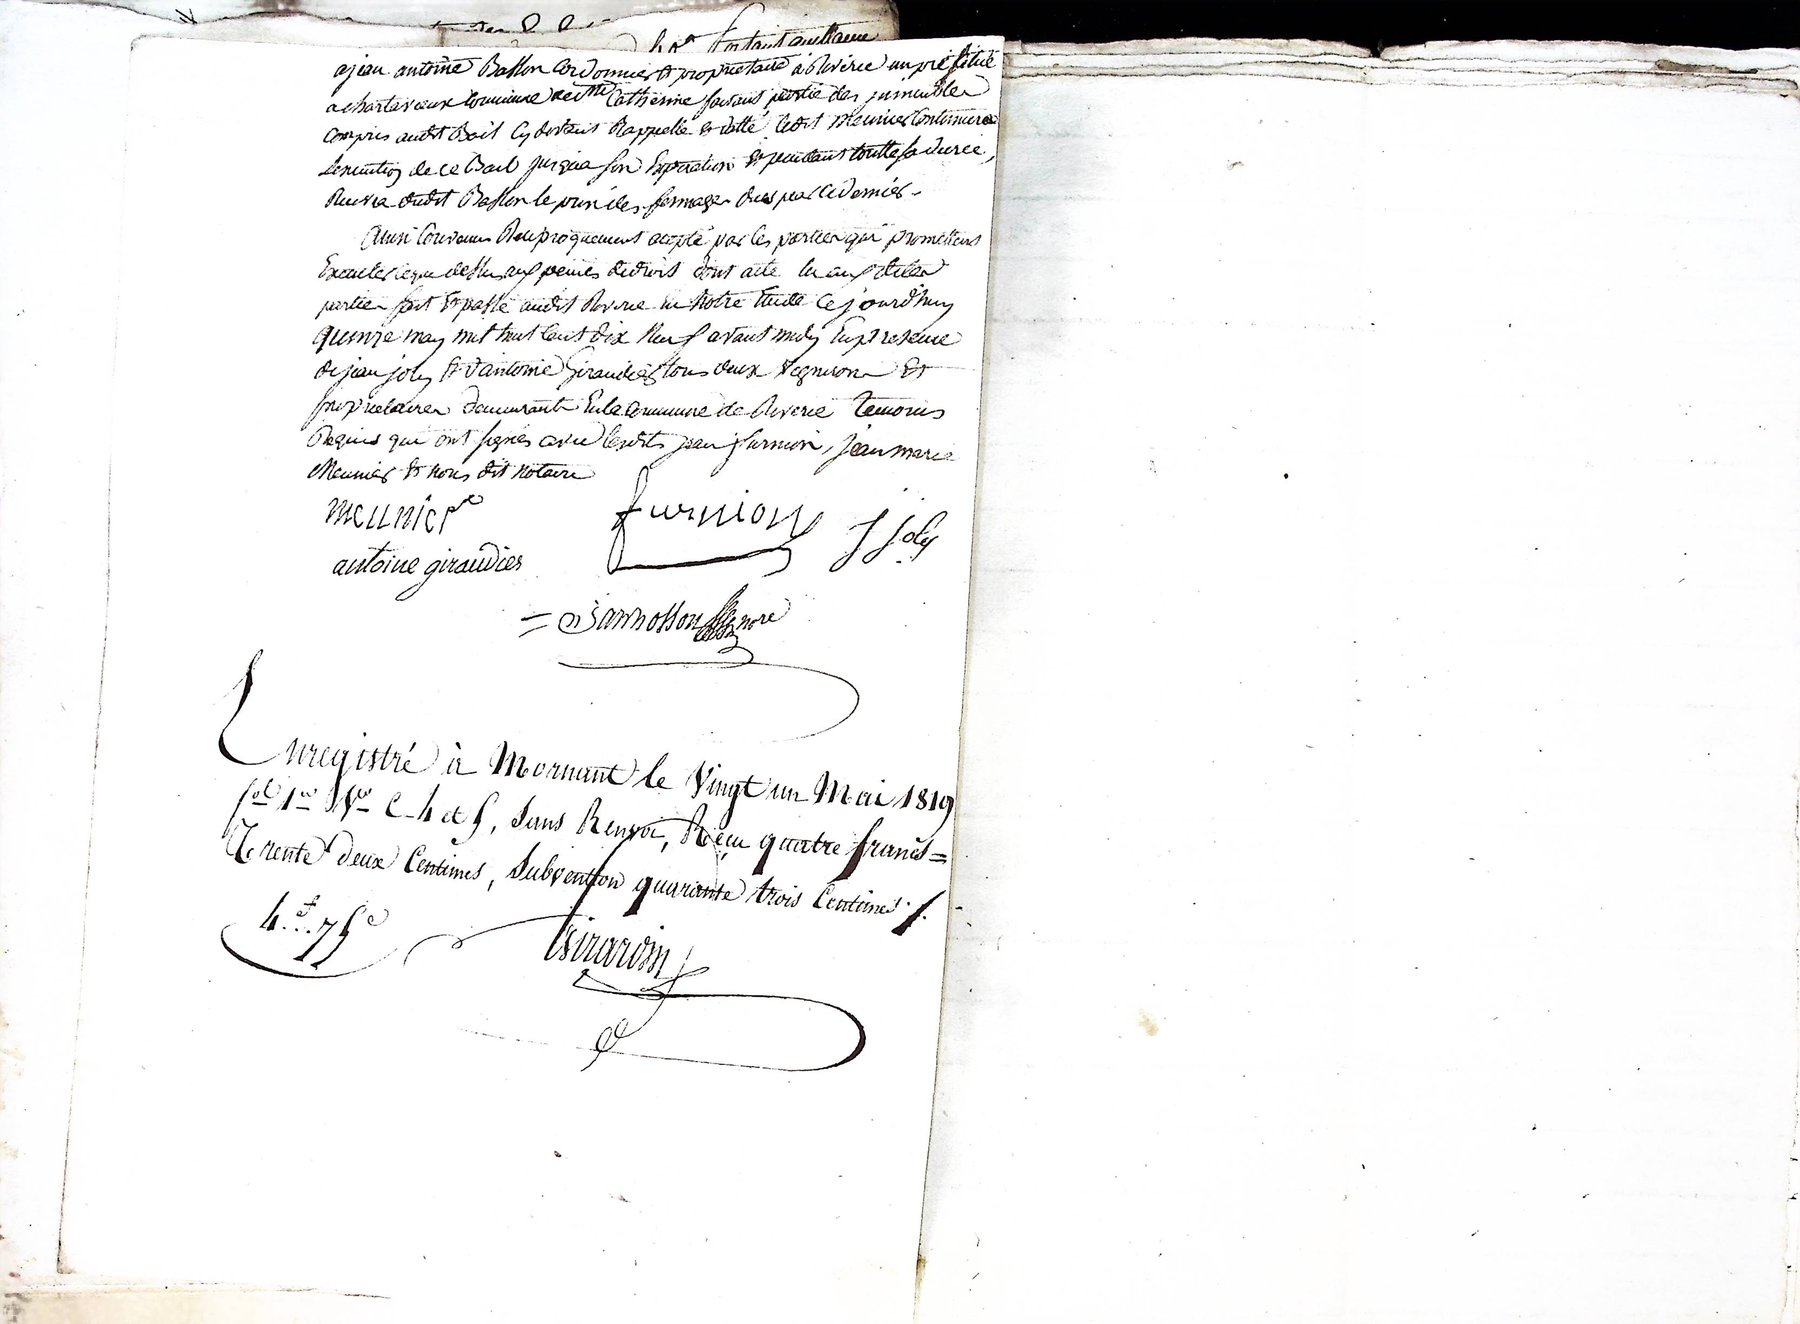 ajean antoine Basson Cordonnier & propriétaire à Riverie un pré situé
a chartaveux Commune de Ste Catherine faisant partie des jmmeubles
compris audit Bail Cy devant Rappellé & datté, ledit Meunier Continuera
Lexecution de ce Bail jusqua son Expiration & pendant toutte sa durée,
Recevra dudit Basson le prix des fermages dues par ce dernier.
Ainsi Convenu Reciproquement accepté par les parties qui promettent
Executer ce que dessus aux peines de droit dont acte lu aux dites
parties fait & passé audit Riverie en Notre Etude Cejourd'huy
quinze may mil huit Cent dix Neuf avant midy En presence
de jean joly & d'antoine Giraudier tous deux Vignerons Et
proprietaires demeurants En la Commune de Riverie Temoins
Requis qui ont signés avec lesdits jean furnion, jean marie
Meunier & nous dit notaire
meunier furnion J joly
antoine giraudier
nore
Enregistré à Mornant le Vingt un Mai 1819
fol 1er Vo C. 4 et 5, Sans Renvoi, Reçu quatre francs =
Trente deux Centimes, Subvention quarante trois Centimes
4f..75c
Girardin